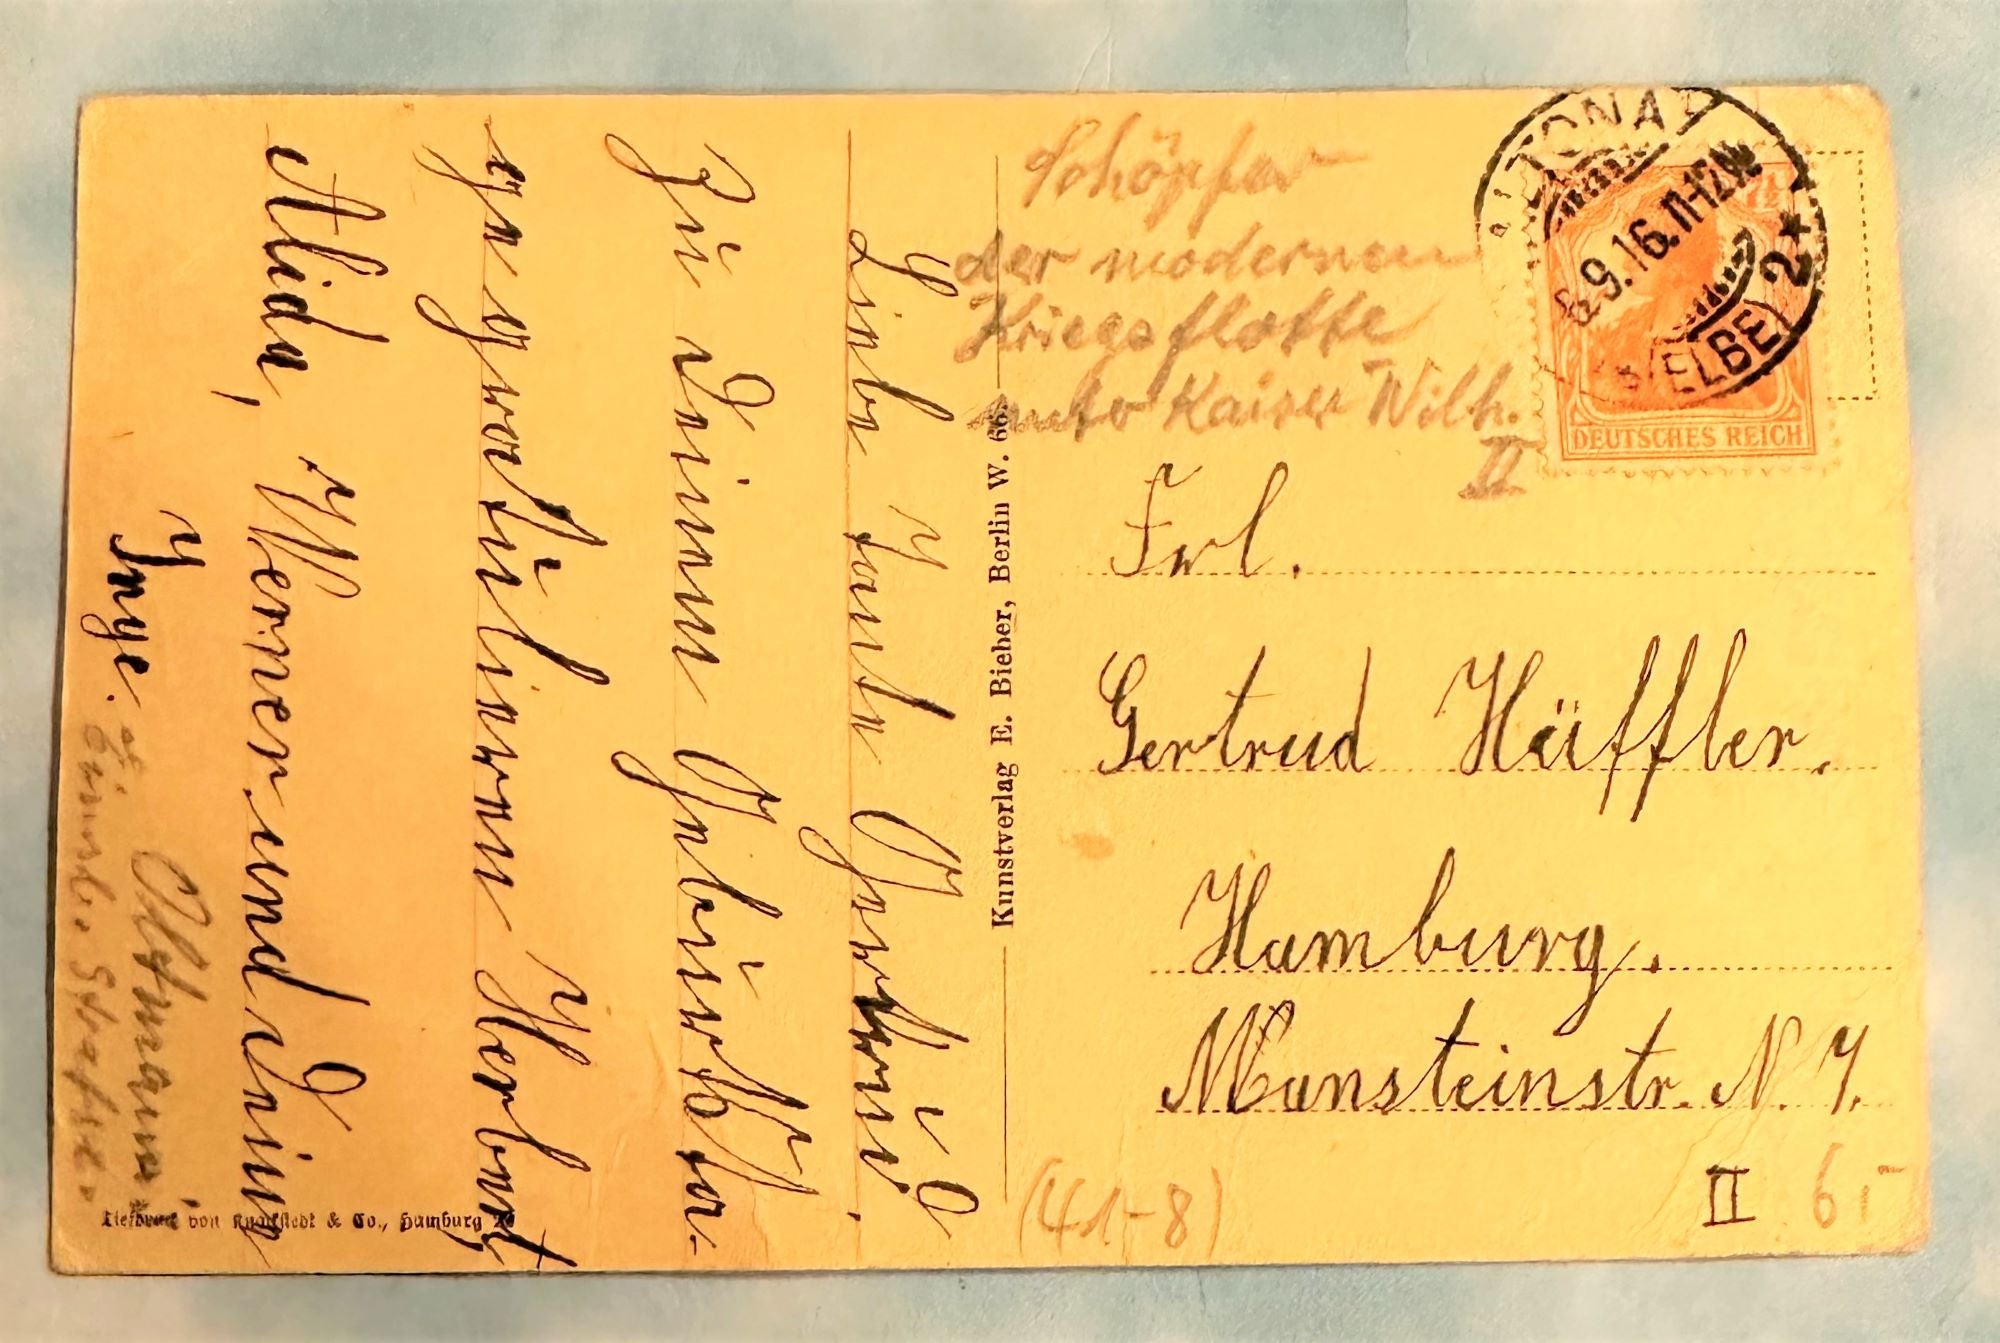 Schöpfer
der modernen
Kriegsflotte
unter Kaiser Wilh.
II
ALTONA
6.9.16. 11-12 N
2 *
(ELBE)
7½
DEUTSCHES REICH
Frl.
Gertrud Häffler.
Hamburg.
Mansteinstr. N. 7.
II 6,-
(41-8)
Kunstverlag E. Bieber, Berlin W. 66.
Liebe Tante Gertrud.
Zu Deinem Geburtsta-
ge gratulieren Herbert
Alida, Werner und Dein
Inge.
Altmann
Tiefdruck von Knackstedt & Co., Hamburg